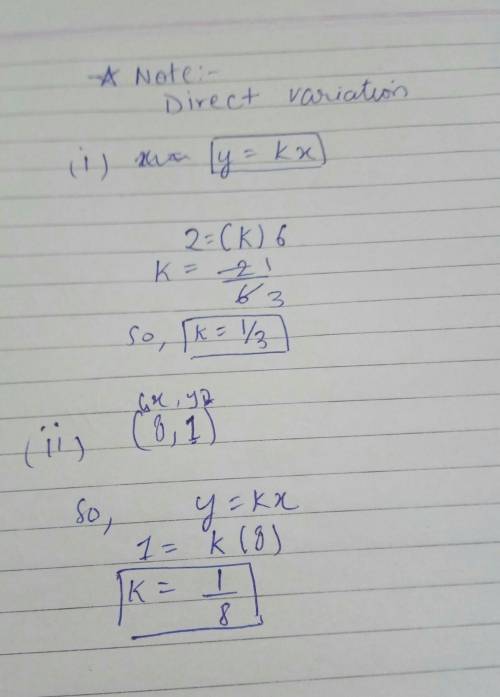 ★ Note:-
Direct variation
(i) y = kx
2 = (k) 6
k = 2 1
6 3
So, k = 1/3
(x, y)
(ii) (8, 1)
So, y = kx
1 = k (8)
k = 1
8